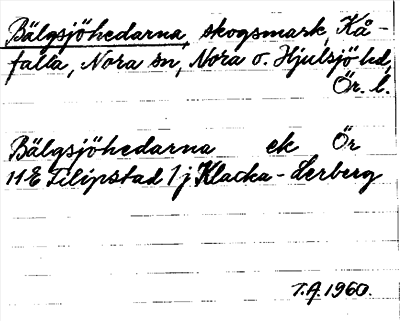 Bälgsjöhedarna, skogsmark, Kå-
falla, Nora sn, Nora o. Hjulsjö hd,
Ör. l.
Bälgsjöhedarna ek Ör
11E Filipstad 1j Klacka-Lerberg
T.A. 1960.